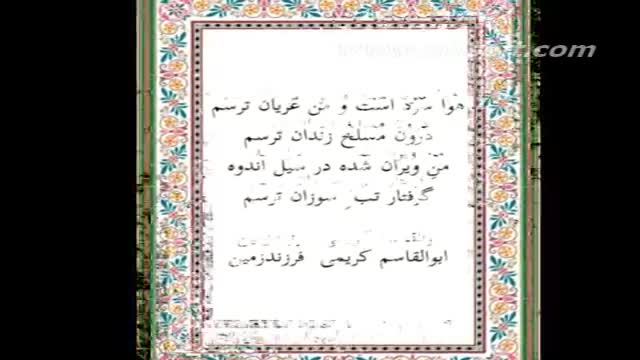 هوا سرد است و من عریان ترسم
درون مسلخ زندان ترسم
من ویران شده در سیل اندوه
گرفتار تب سوزان ترسم
ابوالقاسم کریمی فرزندزمین